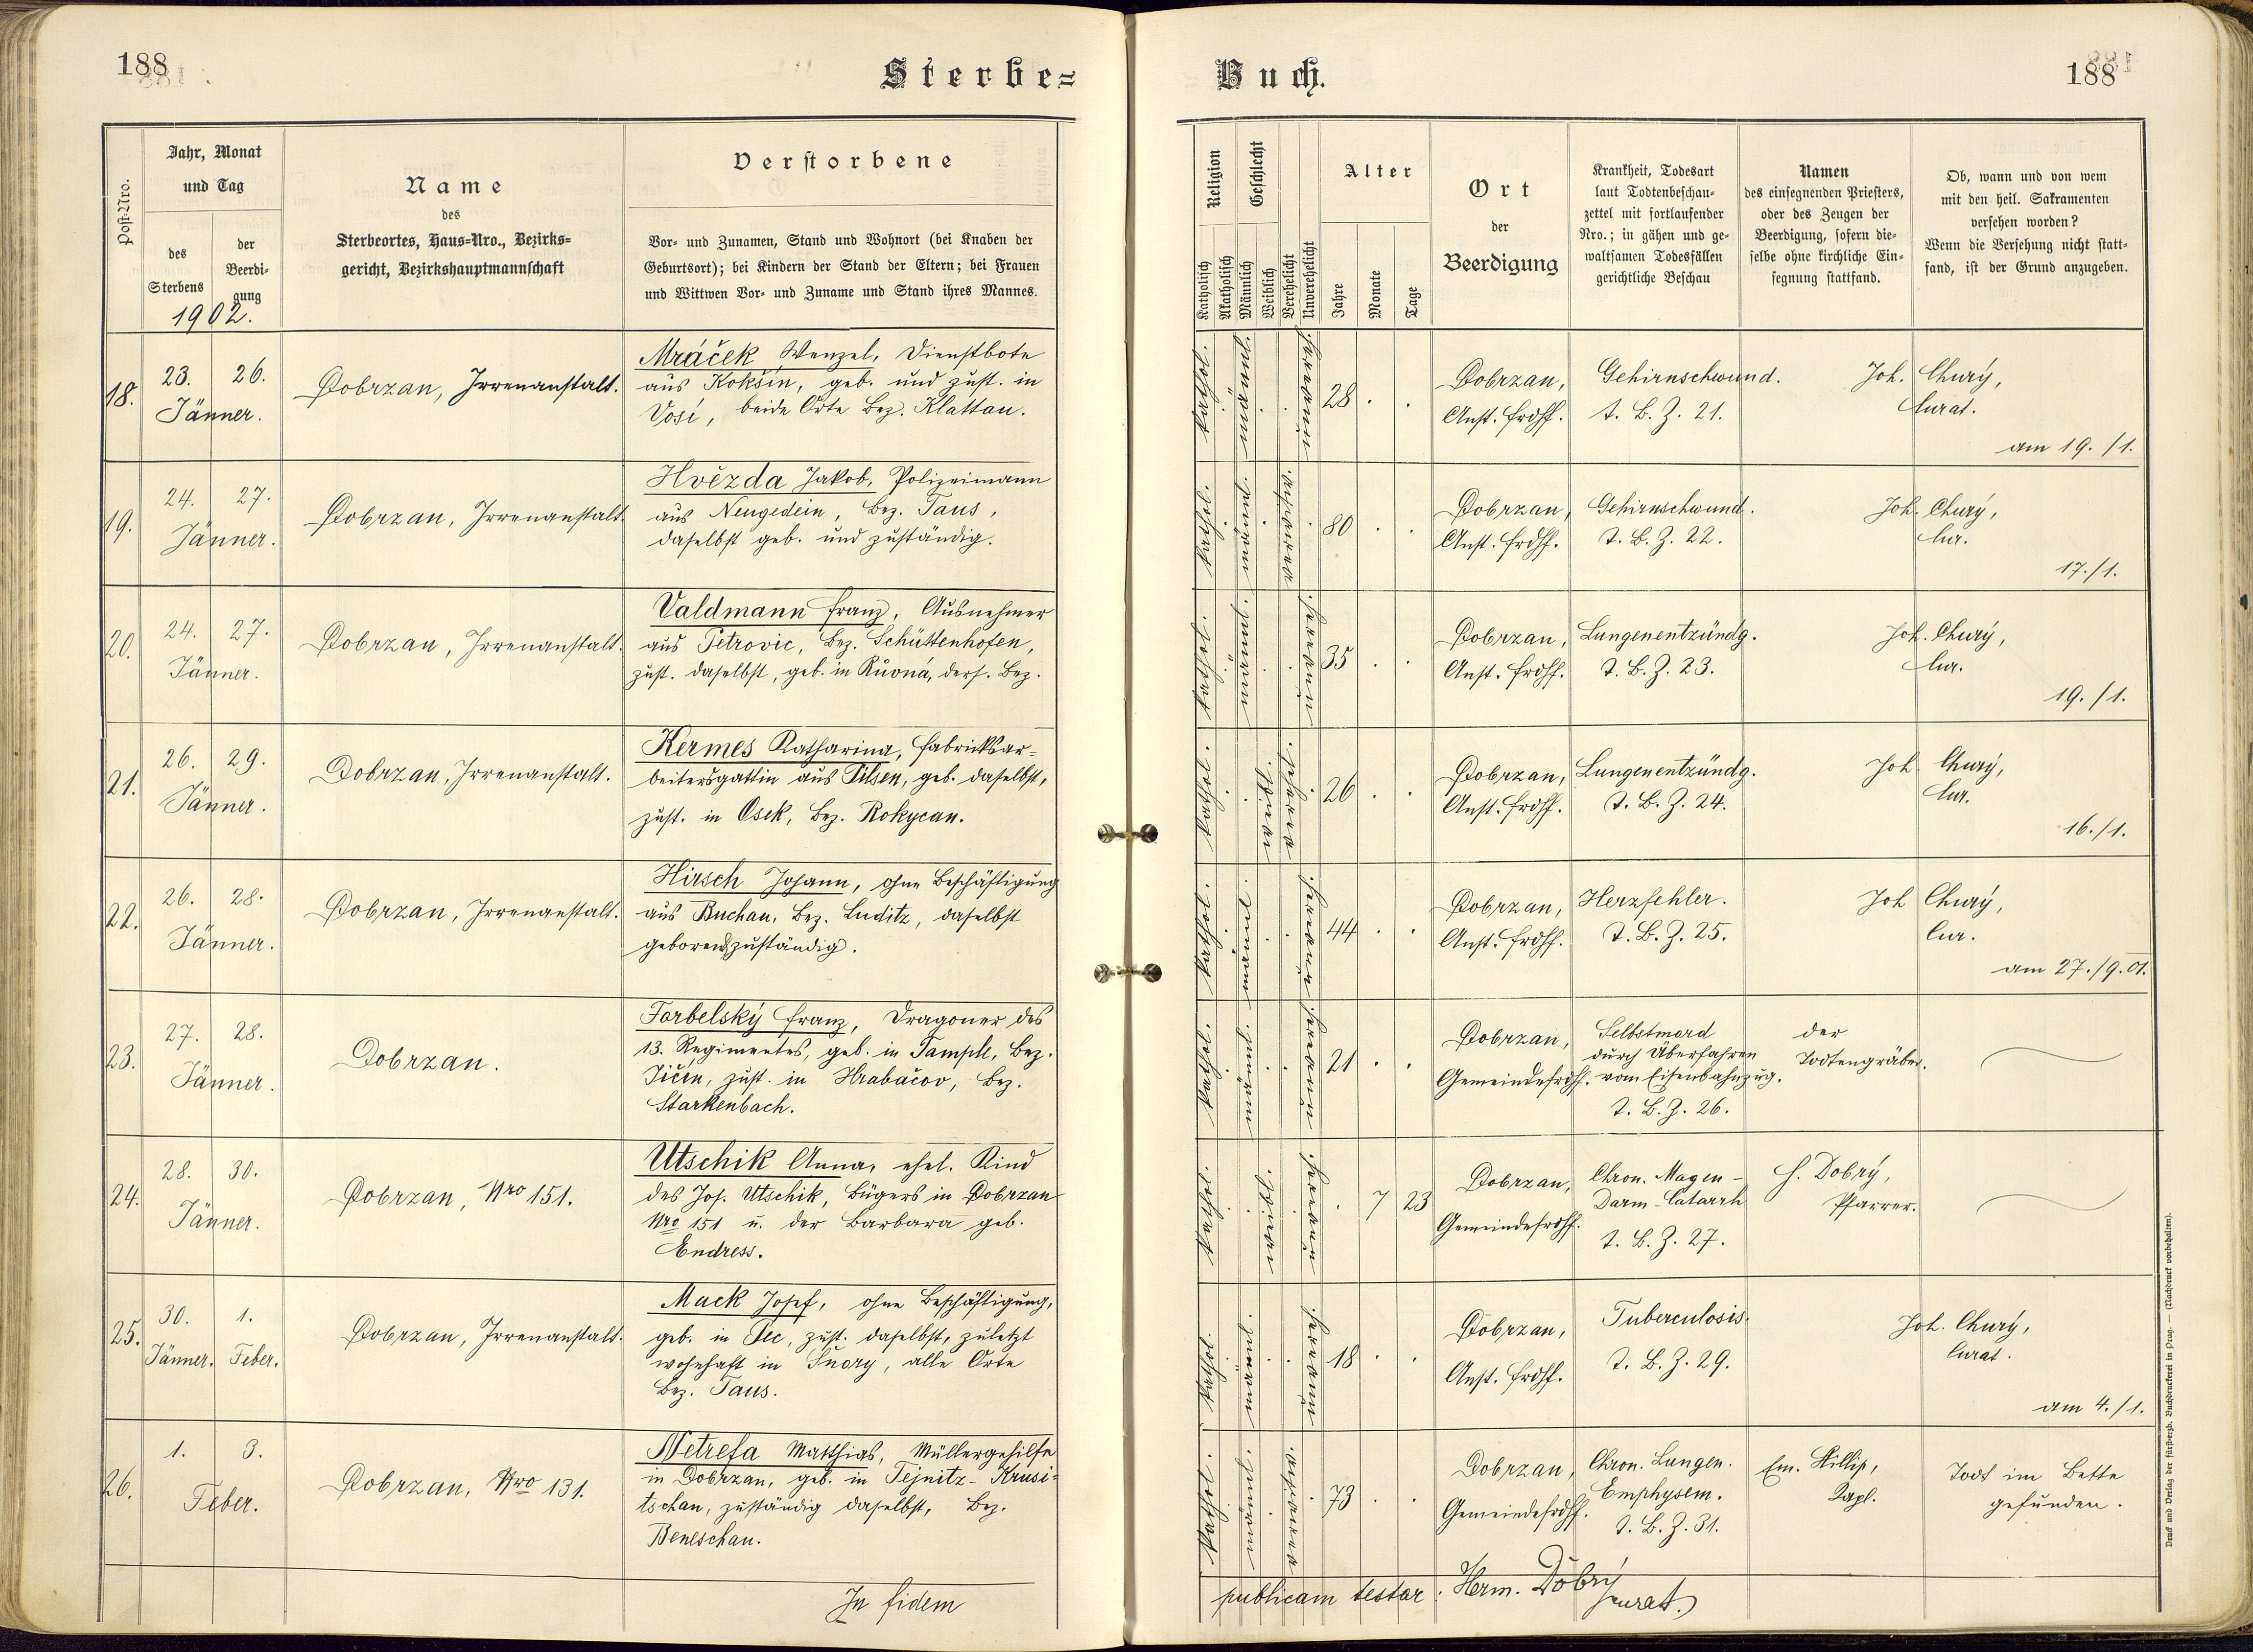 188
Sterbe-
Post-Nro.
Jahr, Monat
und Tag
des
Sterbens
der
Beerdi-
gung
1902.
Name
des
Sterbeortes, Haus-Nro., Bezirks-
gericht, Bezirkshauptmannschaft
Verstorbene
Vor- und Zunamen, Stand und Wohnort (bei Knaben der
Geburtsort); bei Kindern der Stand der Eltern; bei Frauen
und Wittwen Vor- und Zuname und Stand ihres Mannes.
18.
23. 26.
Jänner.
Dobrzan, Irrenanstalt.
Mráček Wenzel, Dienstbote
aus Kokšín, geb. und zust. in
Vosí, beide Orte Bez. Klattau.
19.
24. 27.
Jänner.
Dobrzan, Irrenanstalt.
Hvězda Jakob, Polizeimann
aus Neugedein, Bez. Taus,
daselbst geb. und zuständig.
20.
24. 27.
Jänner.
Dobrzan, Irrenanstalt.
Valdmann Franz, Ausnehmer
aus Petrovic, Bez. Schüttenhofen,
zust. daselbst, geb. in ders. Bez.
21.
26. 29.
Jänner.
Dobrzan, Irrenanstalt.
Kermes Katharina, Fabricksar-
beitersgattin aus Pilsen, geb. daselbst,
zust. in Osek, Bez. Rokycan.
22.
26. 28.
Jänner.
Dobrzan, Irrenanstalt.
Hirsch Johann, ohne Beschäftigung
aus Buchau, Bez. Luditz, daselbst
geboren zuständig.
23.
27. 28.
Jänner.
Dobrzan.
Forbelský Franz, Dragoner des
13. Regimentes, geb. in Bez.
Jičín, zust. in Hrabačov, Bez.
Starkenbach.
24.
28. 30.
Jänner.
Dobrzan, Nro 151.
Utschik Anna, ehel. Kind
des Jos. Utschik, Bügers in Dobrzan
Nro 151 u. der Barbara geb.
Endress.
25.
30. 1.
Jänner. Feber.
Dobrzan, Irrenanstalt.
Mack Josef, ohne Beschäftigung,
geb. in Pec, zust. daselbst, zuletzt
wohnhaft in alle Orte
Bez. Taus.
26.
1. 3.
Feber.
Dobrzan, Nro 131.
Netrefa Matthias, Müllergehilfe
in Dobrzan, geb. in Tejnitz-Krusi-
tschan, zuständig daselbst, Bez.
Beneschau.
In fidem
Buch.
188
Religion
Katholisch
Akatholisch
Geschlecht
Männlich
Weiblich
Verehelicht
Unverehelicht
Alter
Jahre
Monate
Tage
Ort
der
Beerdigung
Krankheit, Todesart
laut Todtenbeschau-
zettel mit fortlaufender
Nro.; in gähen und ge-
waltsamen Todesfällen
gerichtliche Beschau
Namen
des einsegnenden Priesters,
oder des Zeugen der
Beerdigung, sofern die-
selbe ohne kirchliche Ein-
segnung stattfand.
Ob, wann und von wem
mit den heil. Sakramenten
versehen worden?
Wenn die Versehung nicht statt-
fand, ist der Grund anzugeben.
28
Dobrzan,
Anst. Frdhf.
Gehirnschwund.
t. B. Z. 21.
Joh. Churý,
Curat.
am 19./1.
80
Dobrzan,
Anst. Frdhf.
Gehirnschwund.
T. B. Z. 22.
Joh. Churý,
Cur.
17./1.
35
Dobrzan,
Anst. Frdhf.
Lungenentzündg.
T. B. Z. 23.
Joh. Churý,
Cur.
19./1.
26
Dobrzan,
Anst. Frdhf.
Lungenentzündg.
T. B. Z. 24.
Joh. Churý,
Cur.
16./1.
44
Dobrzan,
Anst. Frdhf.
Herzfehler.
T. B. Z. 25.
Joh Churý,
Cur.
am 27./9. 01.
21
Dobrzan,
Gemeindefrdhf.
Selbstmord
durch Überfahren
vom Eisenbahnzug.
T. B. Z. 26.
der
Todtengräber.
7 23
Dobrzan,
Gemeindefrdhf.
Chron. Magen-
Darm-Catarrh
T. B. Z. 27.
H. Dobrý,
Pfarrer.
18
Dobrzan,
Anst. Frdhf.
Tuberculosis.
T. B. Z. 29.
Joh. Churý,
Curat.
am 4./1.
73
Dobrzan,
Gemeindefrdhf.
Chron. Lungen.
Emphysem.
T. B. Z. 31.
Em. Hillip,
Kapl.
Todt im Bette
gefunden.
publicam testor: Herm. Dobrý
curat.
Druck und Verlag der fürsterzb. Buchdruckerei in Prag. — (Nachdruck vorbehalten).